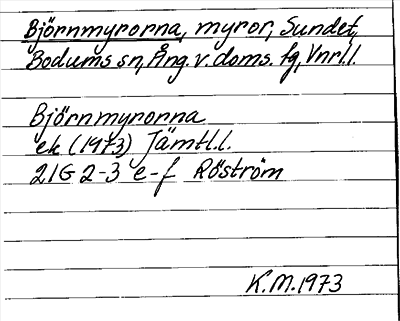 Björnmyrorna, myror, Sundet,
Bodums sn, Ång. v. doms. fg, Vnrl.l.
Björnmyrorna
ek (1973) Jämtl.l.
21G 2-3 e-f Röström
K.M.1973